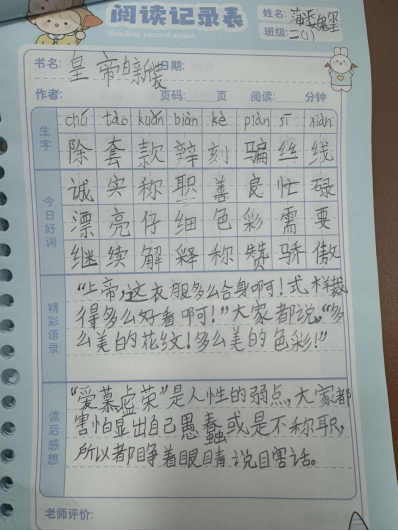 阅读记录表
Reading record sheet
姓名:
班级: 二(1)
书名: 皇帝的新装 日期:
作者: 页码: 页 阅读: 分钟
生字
chú tào kuǎn biàn kè piàn sī xiàn
除 套 款 辩 刻 骗 丝 线
今日好词
诚 实 称 职 善 良 忙 碌
漂 亮 仔 细 色 彩 需 要
继 续 解 释 称 赞 骄 傲
精彩语录
“上帝,这衣服多么合身啊!式样裁
得多么好看啊!”大家都说,“多
么美的花纹!多么美的色彩!”
读后感想
“爱慕虚荣”是人性的弱点,大家都
害怕显出自己愚蠢或是不称职,
所以都睁着眼睛说瞎话。
老师评价: